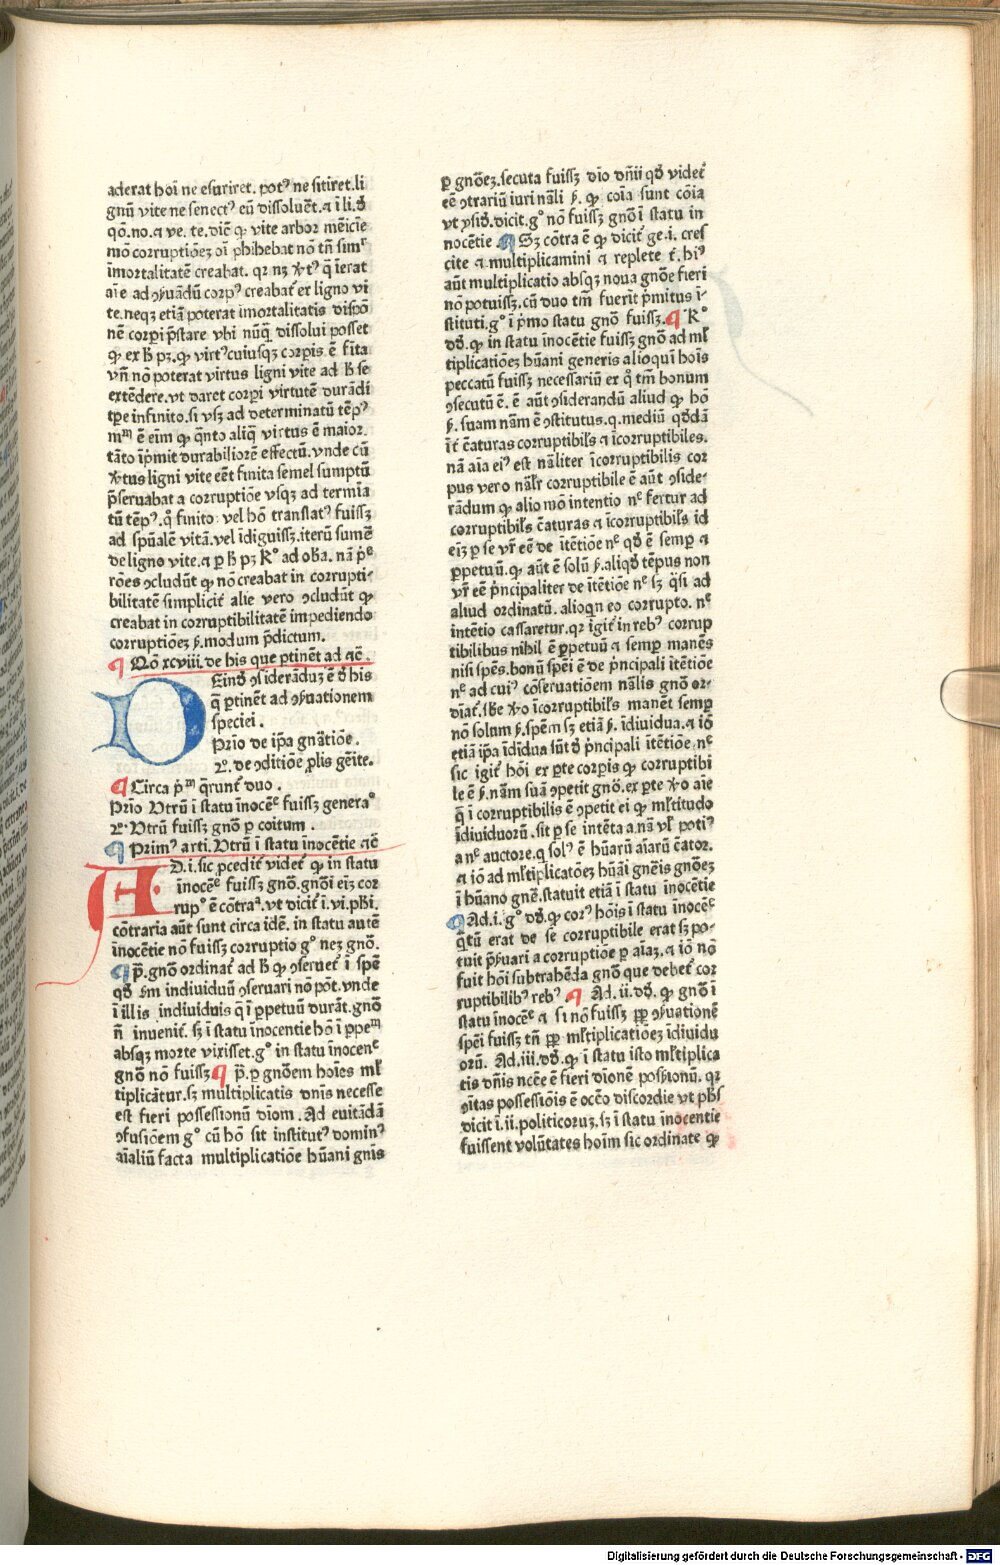 aderat hoı̄ ne esuriret. potꝰ ne sitiret. li
gnū vite ne senectꝰ eū dissoluēt. ⁊ ī li. ꝺ̄
qō. no. ⁊ ve. te. dic̄ ꝙ vite arbor mēicīe
mō corruptiōeꝫ oı̄ ꝓhibebat nō tn̄ simr
īmortalitatē creabat. qꝛ nꝫ v̇tꝰ q̄ īerat
aīe ad ꝯẜuādū corpꝰ creabat̉ er ligno vi
te. neqꝫ etiā poterat imortalitatis dispō
nē corpı̄ p̄stare vbi nūq̄ dissolui posset
ꝙ ex ħ pꝫ. ꝙ virtꝰ cuiusqꝫ corpis ē fīta
vn̄ nō poterat virtus ligni vite ad ħ se
extēdere. vt daret corpı̄ virtutē durādi
tp̄e infinito. sı̄ vsꝫ ad determinatū tēpꝰ
mᵐ ē eı̄m ꝙ q̄nto aliq̄ virtus ē maior.
tāto īp̄mit durabiliorē effectū. vnde cū
v̇tus ligni vite eēt finita semel sumptū
p̄seruabat a corruptiōe vsqꝫ ad termīa
tū tēpꝰ. q̊ finito vel hō translatꝰ fuissꝫ
ad spūalē vitā. vel īdiguissꝫ. iterū sumē
de ligno vite. ⁊ ꝑ ħ pꝫ Rº ad ob̄a. nā p̄ᵉ
rōes ꝯcludūt ꝙ nō creabat in corrupti⸗
bilitatē simplicit̉ alie vero ꝯcludūt ꝙ
creabat in corruptibilitatē impediendo
corruptiōeꝫ ẜ. modum p̄dictum.
¶ Qō xcviii. de his que ꝑtinēt ad ⁊c̄.
DEinꝺ̄ ꝯsiderāduꝫ ē ꝺ̄ his
q̄ ꝑtinēt ad ꝯẜuationem
speciei.
Prīo de ip̄a gn̄atiōe.
2. de ꝯditiōe ꝓlis gēite.
¶ Circa p̄ᵐ q̄runt̉ duo.
Prīo Vtrū ī statu inocēᵉ fuissꝫ generaº
2º Vtrū fuissꝫ gnō ꝑ coitum.
¶ Primꝰ arti. Vtrū ī statu inocētie ⁊c̄
AD. i. sic ꝓcedit̉ videt̉ ꝙ in statu
inocēᵉ fuissꝫ gnō. gnōı̄ eı̄ꝫ cor
rupº ē cōtraᵃ. vt dicit̉ ī. vi. pħi.
cōtraria aūt sunt circa idē. in statu autē
īnocētie nō fuissꝫ corruptio gº neꝫ gnō.
¶ p̄. gnō ordinat̉ ad ħ ꝙ ꝯseruet̉ ī spē
qꝺ̄ ẜm indiuiduū ꝯseruari nō pōt. vnde
ī illis indiuiduis q̄ ī ꝑpetuū durāt. gnō
n̄ inuenit̉. sꝫ ī statu īnocentie hō ī ꝑpeᵐ
absqꝫ morte vixisset. gº in statu īnocenᵉ
gnō nō fuissꝫ ¶ p̄. ꝑ gnōem hoīes ml̉
tiplicāt̉ur. sꝫ multiplicatis dn̄is necesse
est fieri possessionū dīom. Ad euitādā
ꝯfusiōem gº cū hō sit institutꝰ dominꝰ
aīaliū facta multiplicatiōe hūani gn̄is
ꝑ gnōeꝫ. secuta fuissꝫ dīo dn̄ii qꝺ̄ videt̉
eē ꝯtrariū iuri nāli ẜ. ꝙ coı̄a sunt cōia
vt ysiꝺ. dicit. gº nō fuissꝫ gnō ī statu in
nocētie ¶ Sꝫ cōtra ē ꝙ dicit̉ ge. i. cres
cite ⁊ multiplicamini ⁊ replete t̉. hıꝰ
aūt multiplicatio absqꝫ noua gnōe fieri
nō potuissꝫ. cū duo tm̄ fuerīt p̄mitus ī⸗
stituti. gº ī p̄mo statu gnō fuissꝫ. ¶ Rº
ꝺꝺ̄. ꝙ in statu inocētie fuissꝫ gnō ad ml̉
tiplicatiōeꝫ hūani generis alioquı̄ hoīs
peccatū fuissꝫ necessariū ex q̊ tm̄ bonum
ꝯsecutū ē. ē aūt ꝯsiderandū aliud ꝙ hō
ẜ. suam nām ē ꝯstitutus. q. mediū qꝺ̄dā
īt̉ c̄aturas corruptibil̉s ⁊ īcorruptibiles.
nā aīa eiꝰ est nāliter īcorruptibilis cor
pus vero nāl̉r corruptibile ē aūt ꝯside⸗
rādum ꝙ alio mō intentio nᵉ fertur ad
corruptibil̉s c̄aturas ⁊ īcorruptibil̉s id
eı̄ꝫ ꝑ se vr̄ eē de ītētiōe nᵉ qꝺ̄ ē semꝑ ⁊
ꝑpetuū. ꝙ aūt ē solū ẜ. aliqꝺ̄ tēpus non
vr̄ eē p̄ncipaliter de ītētiōe nᵉ sꝫ q̄si ad
aliud ordinatū. alioqn eo corrupto. nᵉ
intētio cassaretur. qꝛ igit̉ in rebꝰ corrup
tibilibus nihil ē ꝑpetuū ⁊ semꝑ manēs
nisi spēs. bonū spēi ē de p̄ncipali ītētiōe
nᵉ ad cuiꝰ cōseruatiōem nālis gnō or⸗
dīat̉. sb̄e v̇o īcorruptibil̉s manēt semꝑ
nō solum ẜ. spēm sꝫ etiā ẜ. īdiuidua. ⁊ iō
etiā ip̄a īdiuidua sūt ꝺ̄ p̄ncipali ītētiōe nᵉ
sic igit̉ hōi ex ꝑte corpis ꝙ corruptibi
le ē ẜ. nām suā ꝯpetit gnō. ex ꝑte v̇o aīe
q̄ ī corruptibilis ē ꝯpetit ei ꝙ ml̉titudo
īdiuiduorū. sit ꝑ se intēta a nā vl̉ potiꝰ
a nᵉ auctore. q solꝰ ē hūarū aīarū c̄ator.
⁊ iō ad ml̉tiplicatōeꝫ hūai gnēis gnōeꝫ
ī hūano gnē. statuit etiā ī statu inocētie
¶ Ad. i. gº ꝺꝺ̄. ꝙ corꝰ hōis ī statu īnocēᵉ
q̄tū erat de se corruptibile erat sꝫ po⸗
tuit p̄ẜuari a corruptiōe ꝑ aīaꝫ. ⁊ iō nō
fuit hōi subtrahēda gnō que debet̉ cor
ruptibilibꝰ rebꝰ ¶ Ad. ii. ꝺꝺ̄. ꝙ gnō ī
statu inocēᵉ ⁊ si nō fuissꝫ ꝓpꝑ ꝯẜuationē
spēi fuissꝫ tn̄ ꝓpꝑ ml̉tiplicatiōeꝫ īdiuidu
orū. Ad. iii. ꝺꝺ̄. ꝙ ī statu isto ml̉tiplica
tis dn̄is nc̄e ē fieri dīonē posẜionū. qꝛ
ꝯītas possessiōis ē occō discordie vt pħs
dicit ī. ii. politicoruꝫ. sꝫ ī statu īnocentie
fuissent volūtates hoīm sic ordinate ꝙ
Digitalisierung gefördert durch die Deutsche Forschungsgemeinschaft - DFG